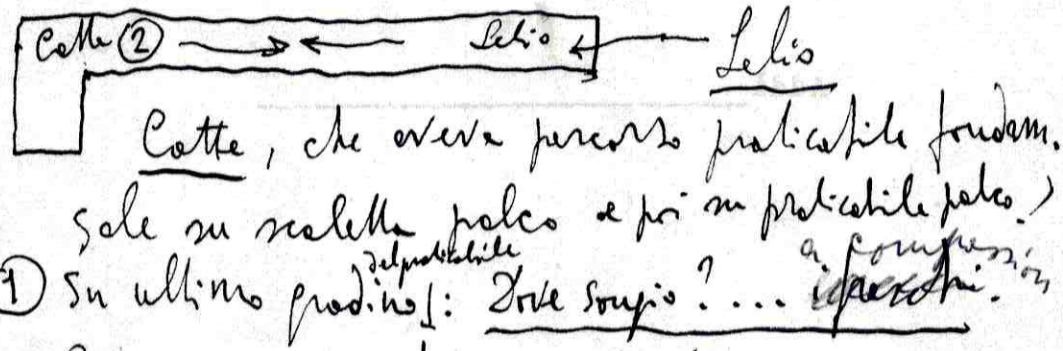 Catte ② Lelio
Lelio
Catte, che aveva percorso praticabile fondam.
sale su scaletta palco e poi su praticabile palco.
① Su ultimo gradino del praticabile: Dove songio? ... a compassion